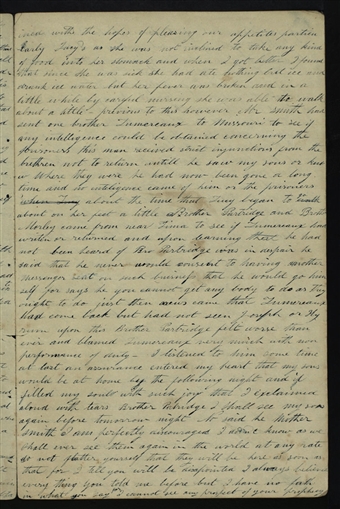 made with the hopes of pleasing our appetites particu
larly Lucy's as she was not inclined to take any kind
of food into her stomach and when I got better I found
that since she was sick she had ate nothing but ice and
drank ice water but her fever was broken and in a
little while by careful nursing she was able to walk
about a little previous to this however Mr Smith had
sent one brother Lamoreaux to Missouri to see if
any intelligence could be obtained concerning the
prisoners this man received strict injunctions from the
brethren not to return untill he saw my sons or knew
where they were he had now been gone a long
time and no inteligence came of him or the prisoners
about the time that Lucy began to walk
about on her feet a little Brother Partridge and Brother
Morley came from near Lima to see if Lamoreaux had
written or returned and upon learning that he had
not been heard of Mr Partridge was in despair he
said that he never would consent to having another
messenger sent on such business that he would go him
self for says he you cannot get any body to do as they
ought to do just then news came that Lamoreaux
had come back but had not seen Joseph or Hy
rum upon this Brother Partridge felt worse than
ever and blamed Lamoreaux very much with non
performance of duty I listened to him some time
at last an assurance entered my heart that my sons
would be at home by the following night and it
filled my soul with such joy that I exclaimed
aloud with tears Brother Partridge I shall see my sons
again before tomorrow night No said he Mother
Smith I am perfectly discouraged I don't know as we
shall ever see them again in the world at any rate
do not flatter yourself that they will be here as soon as
that for I tell you will be disapointed I always believed
every thing you told me before but I have no faith
in what you say I cannot see any prospect of your prophecy